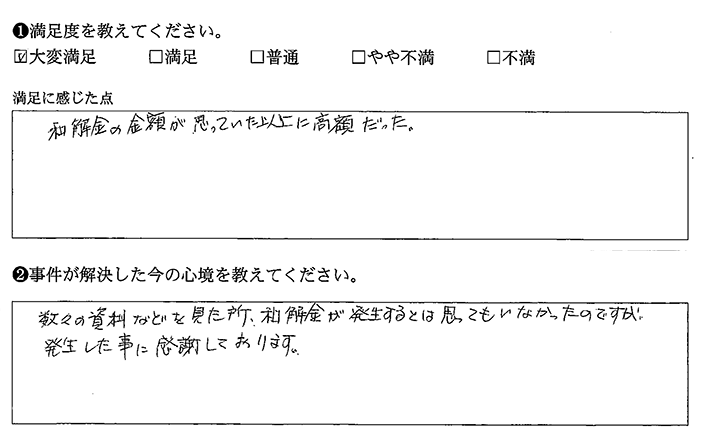 ❶満足度を教えてください。
☑大変満足 □満足 □普通 □やや不満 □不満
満足に感じた点
和解金の金額が思っていた以上に高額だった。
❷事件が解決した今の心境を教えてください。
数々の資料などを見た所、和解金が発生するとは思ってもいなかったのですが、
発生した事に感謝しております。